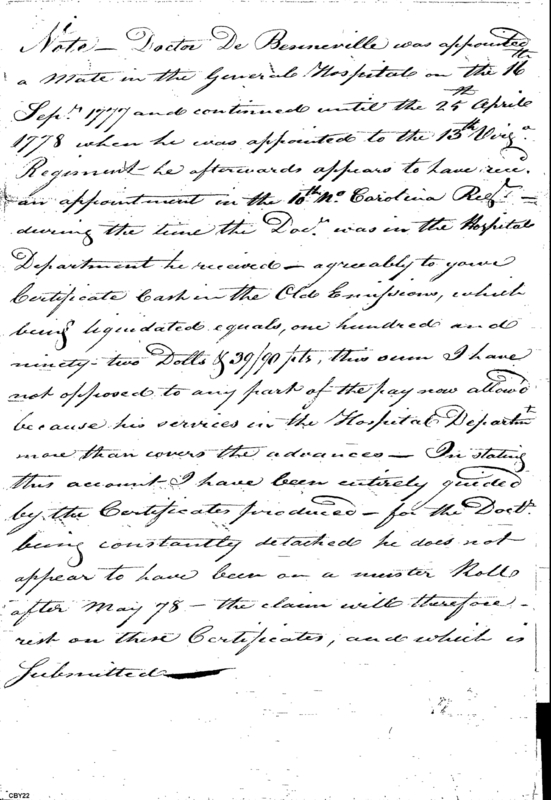 Note – Doctor De Benneville was appointed
a Mate in the General Hospital on the 16th
Sepr. 1777 and continued until the 25th April
1778 when he was appointed to the 13th Virga.
Regiment – he afterwards appears to have recd.
an appointment in the 10th No. Carolina Regt. –
during the time the Docr. was in the Hospital
Department he received – agreeably to your
Certificate Cash in the Old Emissions, which
being liquidated equals, one hundred and
ninety-two Dolls & 39/90 pts, this sum I have
not opposed to any part of the pay now allow'd
because his services in the Hospital Departmt.
more than covers the advances – In stating
this account I have been entirely guided
by the Certificates produced – for the Doctr.
being constantly detached he does not
appear to have been on a muster Roll
after May 78 – the claim will therefore –
rest on these Certificates, and which is
Submitted —
CBY22